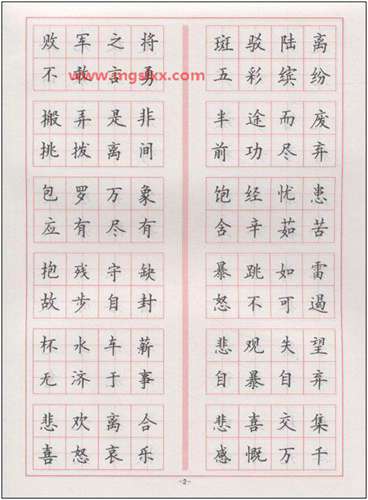 败军之将
不敢言勇
搬弄是非
挑拨离间
包罗万象
应有尽有
抱残守缺
故步自封
杯水车薪
无济于事
悲欢离合
喜怒哀乐
斑驳陆离
五彩缤纷
半途而废
前功尽弃
饱经忧患
含辛茹苦
暴跳如雷
怒不可遏
悲观失望
自暴自弃
悲喜交集
感慨万千
-2-